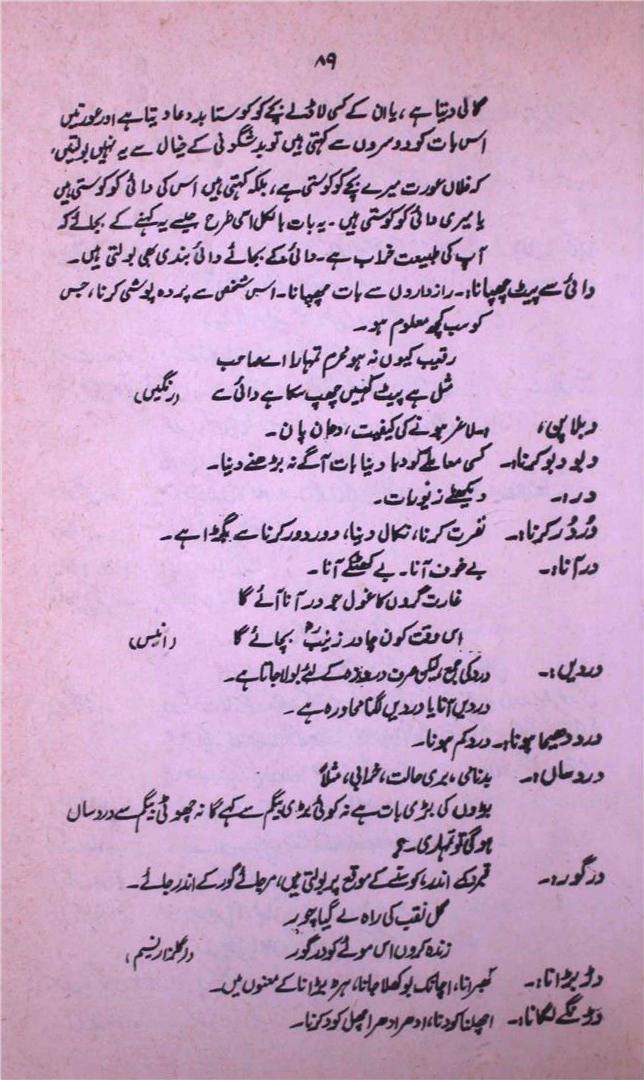 ۸۹
گالی دیتا ہے، یا ان کے کسی لاڈلے بچے کو کوستا بد دعا دیتا ہے اور عورتیں
اس بات کو دوسروں سے کہتی ہیں تو بدشگونی کے خیال سے یہ نہیں بولتیں،
کہ فلاں عورت میرے بچے کو کوستی ہے، بلکہ کہتی ہیں اس کی دائی کو کوستی ہیں
یا میری دائی کو کوستی ہیں۔ یہ بات بالکل اسی طرح جیسے یہ کہنے کے بجائے کہ
آپ کی طبیعت خراب ہے۔ دائی کے بجائے دائی بندی بھی بولتی ہیں۔
دائی سے پیٹ چھپانا:۔ رازداروں سے بات چھپانا۔ اس شخص سے پردہ پوشی کرنا، جس
کو سب کچھ معلوم ہو۔
رقیب کیوں نہ ہو محرم تمہارا اے صاحب
مثل ہے پیٹ کہیں چھپ سکا ہے دائی سے (رنگیں)
دبلاپن، اسلاغر ہونے کی کیفیت، دھان پان۔
دبو دبو کرنا:۔ کسی معاملے کو دبا دینا بات آگے نہ بڑھنے دینا۔
در:۔ دیکھئے زیورات۔
دُردُر کرنا:۔ نفرت کرنا، نکال دینا، دور دور کرنا سے بگڑا ہے۔
درآنا:۔ بے خوف آنا۔ بے کھٹکے آنا۔
غارت گروں کا غول جو درآنا آئے گا
اس وقت کون چادر زینبؓ بچائے گا (انیس)
دردیں:۔ درد کی جمع لیکن صرف دردِ زہ کے لئے بولا جاتا ہے۔
دردیں آنا یا دردیں لگنا محاورہ ہے۔
درد دھیما ہونا:۔ درد کم ہونا۔
دردساں:۔ بدنامی، بری حالت، خرابی، مثلاً
بڑوں کی بڑی بات ہے نہ کوئی بڑی بیگم سے کہے گا نہ چھوٹی بیگم سے دردساں
ہوگی تو تمہاری۔
درگور:۔ قبر کے اندر، کوسنے کے موقع پر بولتی ہیں، مر جائے گور کے اندر جائے۔
گل نقب کی راہ لے گیا چور
زندہ کروں اس موئے کو درگور (گلزار نسیم)
دڑبڑانا:۔ گھبرانا، اچانک بوکھلا جانا، ہڑبڑانا کے معنوں میں۔
دڑنگے لگانا:۔ اچھلنا کودنا، ادھر ادھر اچھل کود کرنا۔